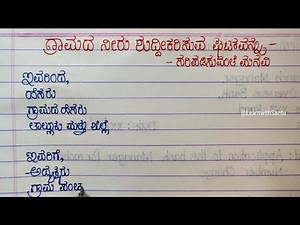 ಗ್ರಾಮದ ನೀರು ಶುದ್ಧೀಕರಿಸುವ ಘಟಕವನ್ನು
- ಸರಿಪಡಿಸುವಂತೆ ಮನವಿ
ಇವರಿಂದ,
ಹೆಸರು
ಗ್ರಾಮದ ಹೆಸರು
ತಾಲ್ಲೂಕು ಮತ್ತು ಜಿಲ್ಲೆ
ಇವರಿಗೆ,
-ಅಧ್ಯಕ್ಷರು
ಗ್ರಾಮ ಪಂಚಾ